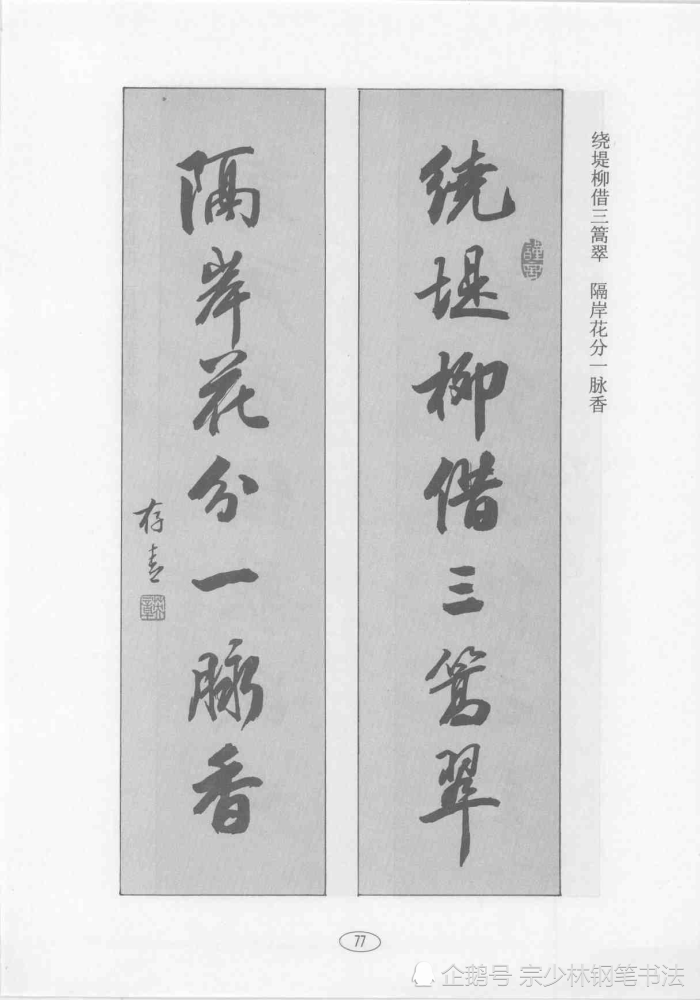 绕堤柳借三篙翠 隔岸花分一脉香
繞堤柳借三篙翠
隔岸花分一脉香
存
77
企鹅号 宗少林钢笔书法